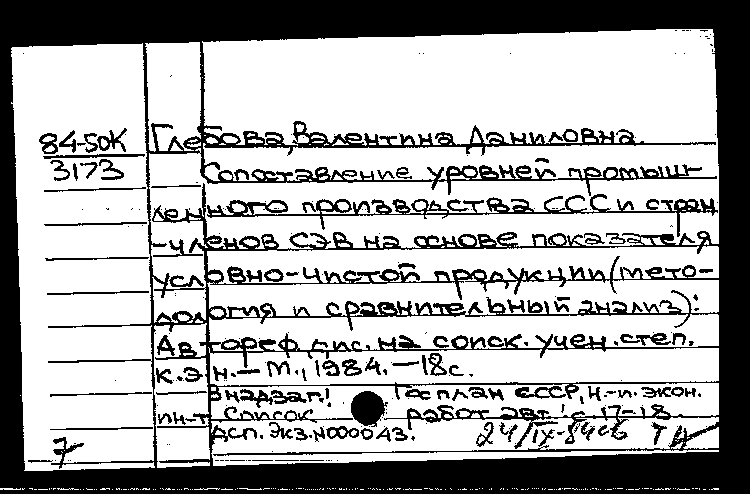 84-50К Глебова, Валентина Даниловна.
3173 Сопоставление уровней промыш-
ленного производства СССР и стран
-членов СЭВ на основе показателя
условно-чистой продукции (мето-
дология и сравнительный анализ):
Автореф. дис. на соиск. учен. степ.
к.э.н. – М., 1984. – 18с.
В надзаг.: Госплан СССР, Н.-и. экон.
ин-т Список работ авт.: с. 17-18.
ДСП. Экз. N000043.
7 24/IX-84